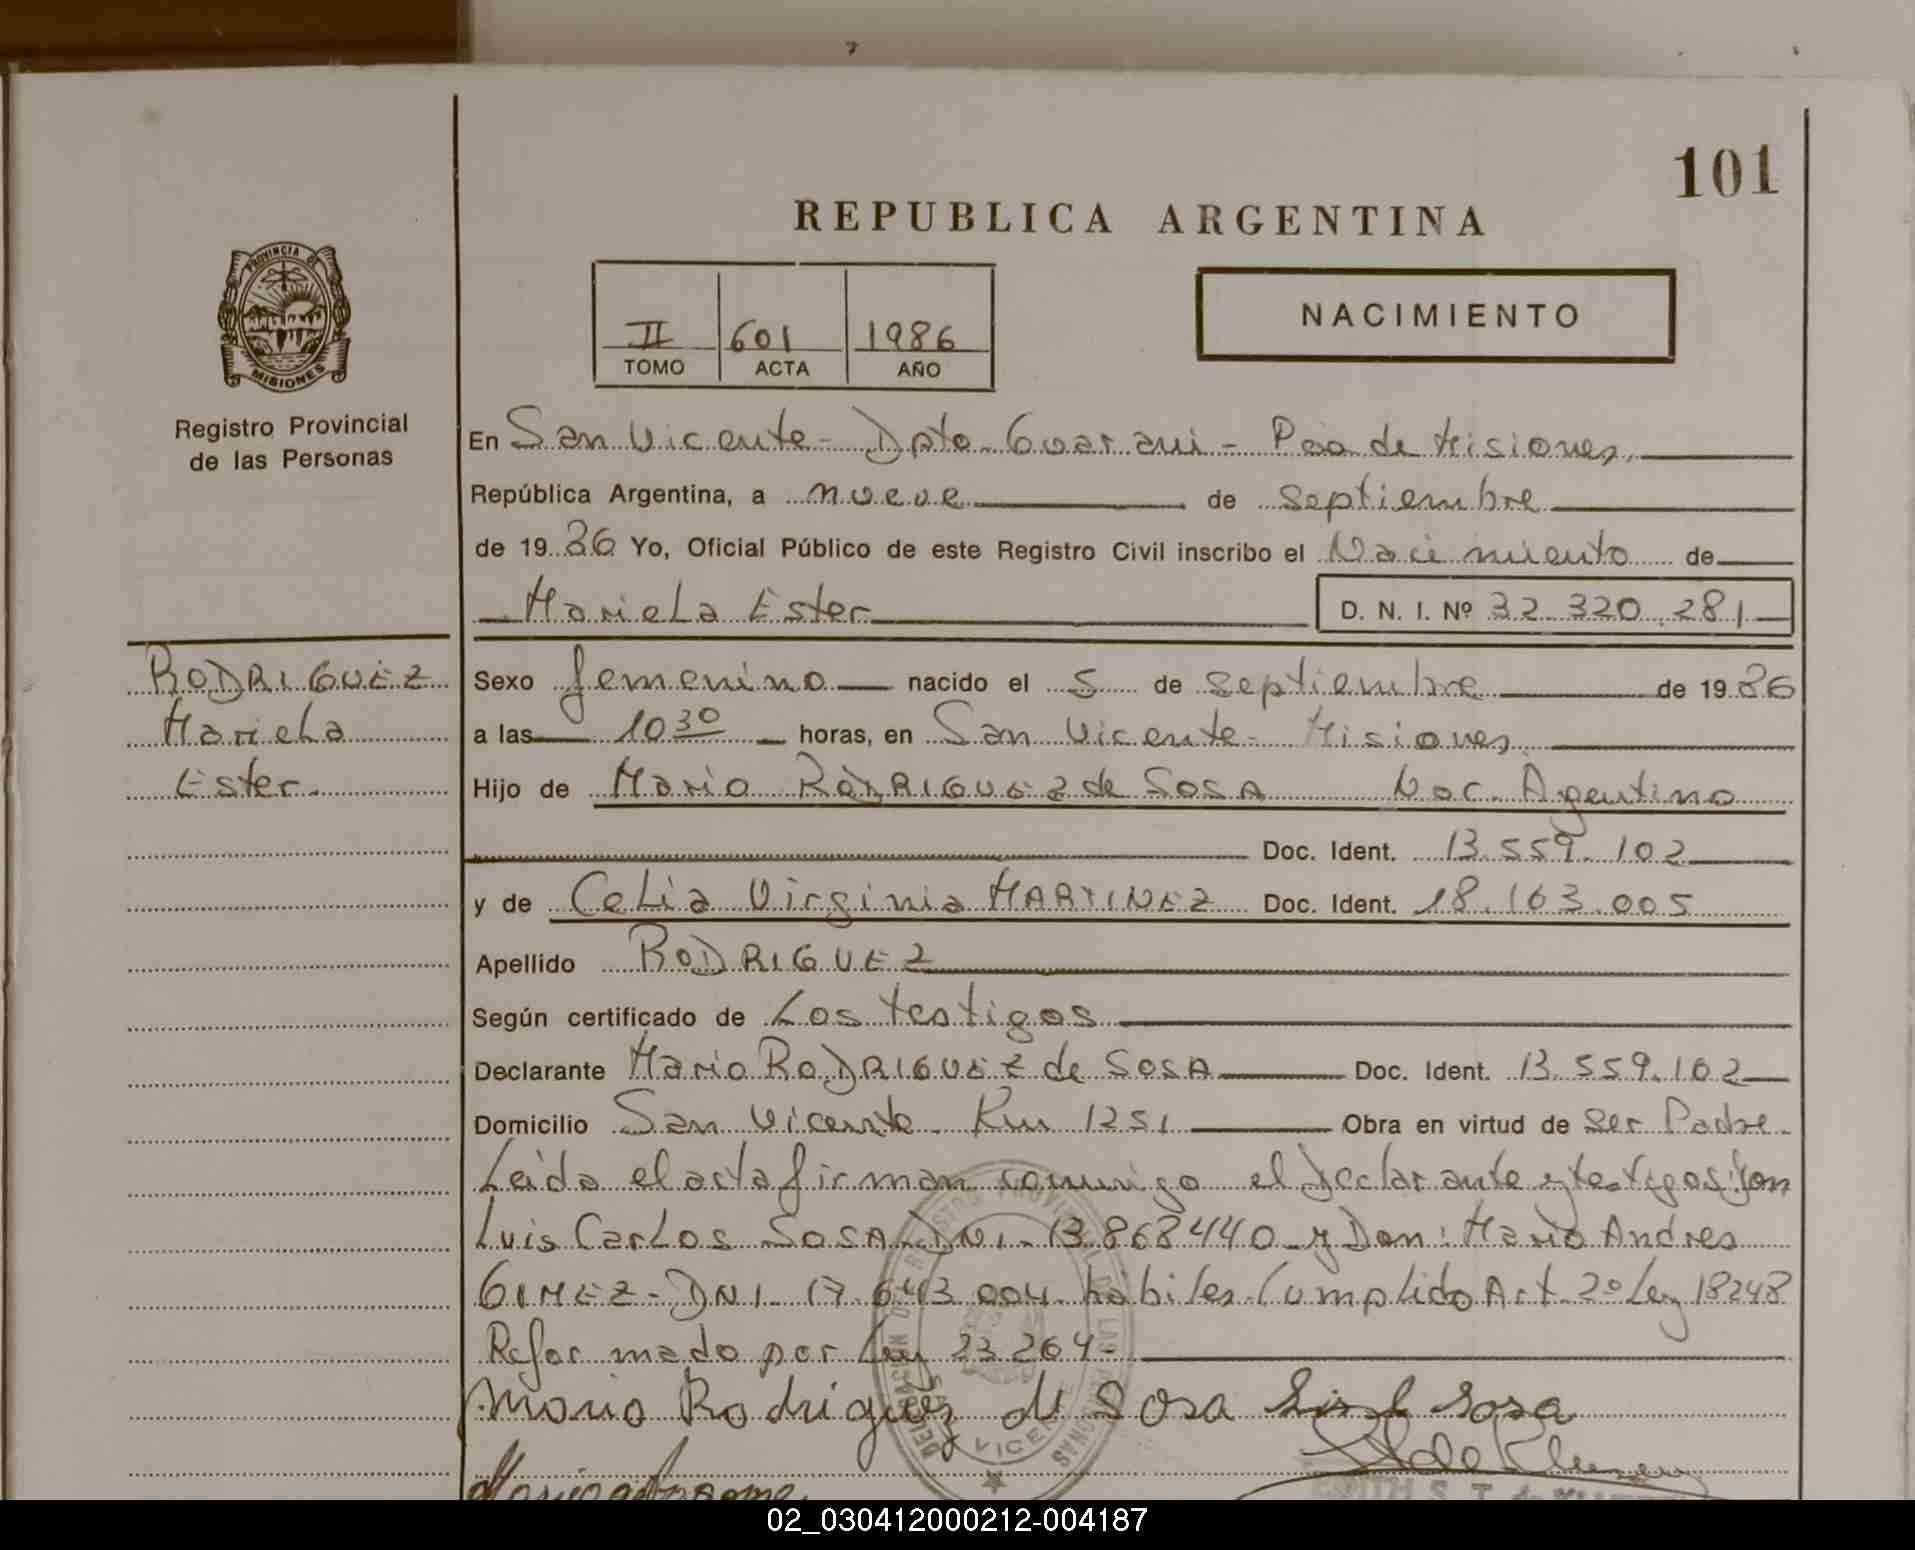 101
REPUBLICA ARGENTINA
PROVINCIA DE
MISIONES
Registro Provincial
de las Personas
II 601 1986
TOMO ACTA AÑO
NACIMIENTO
En San Vicente - Dpto. Guarani - Pcia de Misiones.
República Argentina, a nueve de septiembre
de 1986 Yo, Oficial Público de este Registro Civil inscribo el Nacimiento de
Mariela Ester D. N. I. Nº 32.320.281
RODRIGUEZ
Mariela
Ester.
Sexo femenino nacido el 5 de septiembre de 1986
a las 10 30 horas, en San Vicente - Misiones.
Hijo de Mario RODRIGUEZ de SOSA Nac. Argentino
Doc. Ident. 13.559.102
y de Celia Virginia MARTINEZ Doc. Ident. 18.163.005
Apellido RODRIGUEZ
Según certificado de Los testigos
Declarante Mario RODRIGUEZ de SOSA Doc. Ident. 13.559.102
Domicilio San Vicente Km 1251 Obra en virtud de ser Padre.
Leida el acta firman conmigo el declarante y testigos: Don
Luis Carlos SOSA DNI - 13.868440 y Don: Mario Andres
GIMEZ - DNI 17.643.004 habiles. Cumplido Art. 2º Ley 18248
Reformado por Ley 23.264-
Mario Rodriguez de Sosa Sosa
02_030412000212-004187